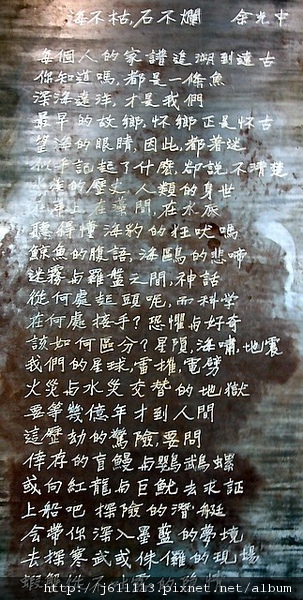 海不枯,石不爛 余光中
每個人的家譜追溯到遠古
你知道嗎,都是一條魚
深海遠洋,才是我們
最早的故鄉,怀鄉正是怀古
藍的眼睛,因此,都著迷
似乎記起了什麼,卻說不清楚
的歷史,人類的身世
在 間,在水族
聽得懂海豹的狂吠嗎
鯨魚的腹語,海鷗的悲啼
迷霧与羅盤之間,神話
從何處起頭呢,而科学
在何處接手?恐懼与好奇
該如何區分?星隕,海嘯,地震
我們的星球,雷摧,電劈
火災与水災交替的地獄
要等幾億年才到人間
這歷劫的驚險,要問
倖存的盲鰻与鸚鵡螺
或向紅龍与巨魷去求証
上船吧 探險的潛艇
会帶你深入墨藍的夢境
去探寒武或侏儸的現場
蝦蟹
http://j611113.pixnet.net/album